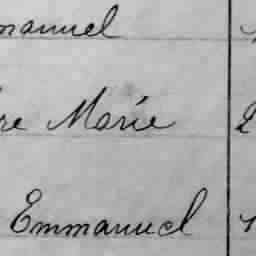 manuel
re Marie 2
Emmanuel